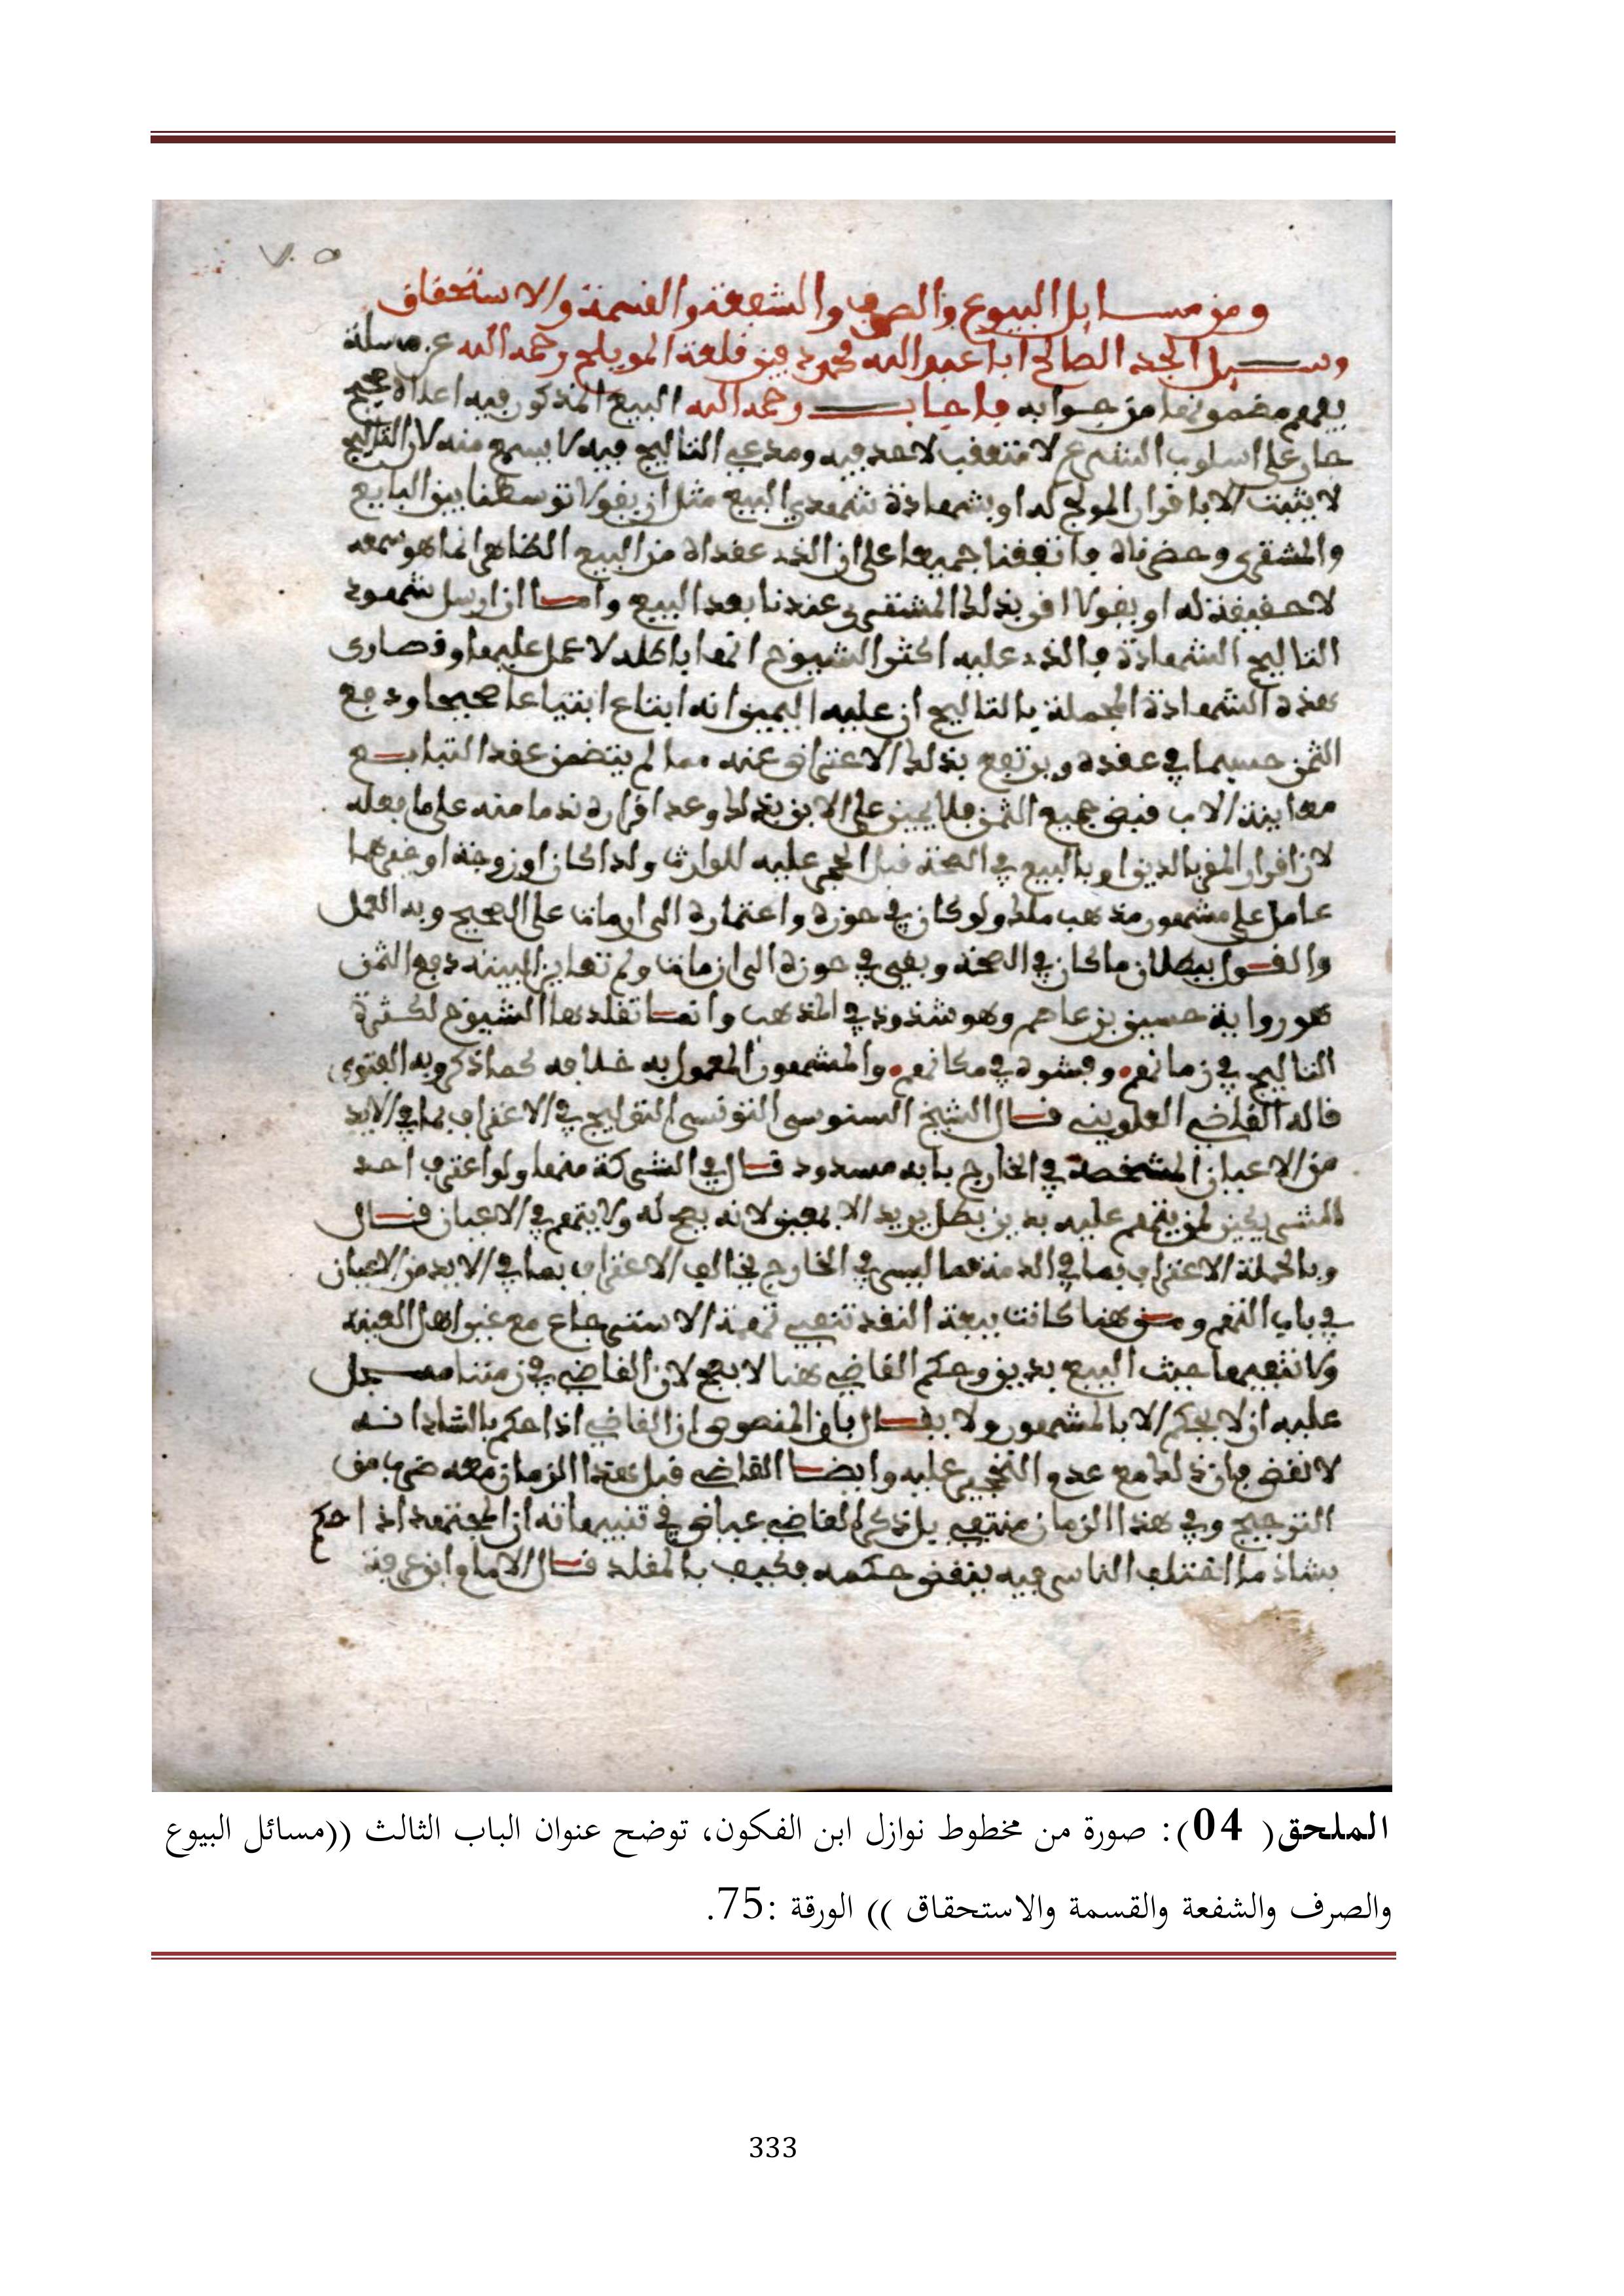 ٧٥
ومن مسايل البيوع والصرف والشفعة والقسمة والاستحقاق
وسيل الجد الصالح ابا عبد الله محمد دفين قلعة رحمه الله عن مسلة
يفهم مضمونها من جوابه فاجاب رحمه الله البيع المذكور فيه اعلاه صحيح
جار على اسلوب الشرع لا متعقب لاحد فيه ومدعي التاليج فيه لا يسمع منه لان التاليج
لا يثبت الا باقرار المولج له او بشهادة شهيدي البيع مثل ان يقولا توسطنا بين البايع
والمشتري وحضرناه واتفقنا جميعا على ان الذي عقداه من البيع الظاهر انما هو سمعه
لا حقيقة له او يقولا اقر بذلك المشتري عندنا بعد البيع واما ان ارسل شهود
التاليج الشهادة فالذي عليه اكثر الشيوخ انها باطله لا عمل عليها وقصارى
هذه الشهادة المجملة بالتاليج ان عليه اليمين انه ابتاع ابتياعا صحيحا ودفع
الثمن حسبما في عقده ويرتفع بذلك الاعتراض عنه مما لم يتضمن عقد التبايع
معاينة الاب قبض جميع الثمن فلا يمين على الابن بذلك وعد اقراره ندما منه على ما فعله
لان اقرار المقر بالدين او بالبيع في الصحة قبل الحجر عليه للوارث ولدا كان او زوجة او غيرهما
عامل على مشهور مذهب ملك ولو كان في حوزه واعتماره الى ان مات على الصحيح وبه العمل
والقول ببطلان ما كان في الصحة وبقي في حوزه الى ان مات ولم تعاين البينه دفع الثمن
هو رواية حسين بن عاصم وهو شذوذ في المذهب وانما تقلدها الشيوخ لكثرة
التاليج في زمانهم وفشوه في مكانهم والمشهور المعمول به خلافه كما ذكر وبه الفتوى
قاله القاضي قال الشيخ السنوسي التونسي التوليج في الاعتراف بما في الايد
من الاعيان المشخصة في الخارج بابه مسدود قال في الشركة منها ولو اعترف احد
الشريكين لمن يتهم عليه بدين بطل يريد لا بمعين لانه يصح له ولا يتهم في الاعيان قال
وبالجملة الاعتراف بما في الذمة مما ليس في الخارج يخالف الاعتراف بما في الايد من الاعيان
في باب التهم ومن هنا كانت بيعة النقد تنفي تهمة الاسترجاع مع غير اهل العينه
ولا تنفيها حيث البيع بدين وحكم القاضي هنا لا يصح لان القاضي في زمننا مسجل
عليه ان لا يحكم الا بالمشهور ولا يقال بان المنصوص ان القاضي اذا حكم بالشاذ انه
لا نقض فان ذلك مع عدم التحجير عليه وايضا القاضي قبل هذا الزمان معه ضرب من
الترجيح وفي هذا الزمان منتفي بل ذكر القاضي عياض في تنبيهاته ان المجتهد اذا حكم
بشاذ ما اختلف الناس فيه ينقض حكمه فكيف بالمقلد قال الامام ابن عرفة
الملحق( 04): صورة من مخطوط نوازل ابن الفكون، توضح عنوان الباب الثالث ((مسائل البيوع
والصرف والشفعة والقسمة والاستحقاق )) الورقة :75.
333